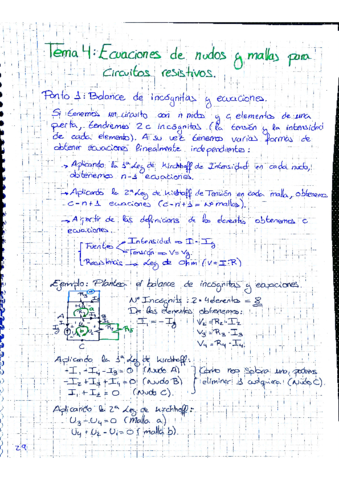 Tema 4: Ecuaciones de nudos y mallas para
circuitos resistivos.
Punto 1: Balance de incognitas y ecuaciones.
Si tenemos un circuito con n nudos y c elementos de una
puerta, tendremos 2c incognitas (la tensión y la intensidad
de cada elemento). A su vez tenemos varias formas de
obtener ecuaciones linealmente independientes:
→ Aplicando la 1ª Ley de Kirchhoff de Intensidad en cada nudo,
obtenemos n-1 ecuaciones.
→ Aplicando la 2ª Ley de Kirchhoff de Tensión en cada malla, obtenemos
c-n+1 ecuaciones (c-n+1 = Nº mallas).
→ A partir de las definiciones de los elementos obtenemos c
ecuaciones.
Fuentes Intensidad → I = Ig
Tensión → V = Vg
Resistencias → Ley de Ohm (V = I·R)
Ejemplo: Plantea el balance de incognitas y ecuaciones.
Nº Incognitas: 2·4 elementos = 8
De los elementos obtenemos:
I₁ = -Ig
V₂ = R₂·I₂
V₃ = R₃·I₃
V₄ = R₄·I₄
A
B
C
Aplicando la 1ª Ley de Kirchhoff:
-I₁ - I₄ - I₃ = 0 (Nudo A)
-I₂ + I₃ + I₄ = 0 (Nudo B)
I₁ + I₂ = 0 (Nudo C)
Como nos sobra una, podemos
eliminar 1 cualquiera (Nudo C).
Aplicando la 2ª Ley de Kirchhoff:
U₃ - U₄ = 0 (malla a)
U₄ + U₂ - U₁ = 0 (malla b).